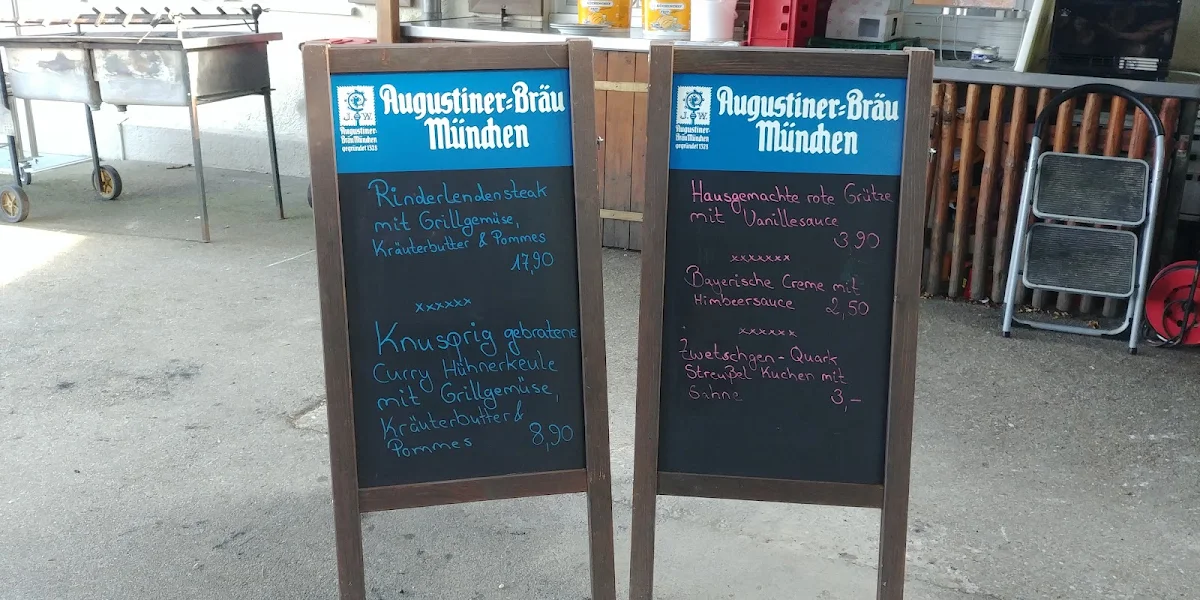 Augustiner-Bräu
München
J. W.
Augustiner-
Bräu München
gegründet 1328
Rinderlendensteak
mit Grillgemüse,
Kräuterbutter & Pommes
17,90
xxxxxx
Knusprig gebratene
Curry Hühnerkeule
mit Grillgemüse,
Kräuterbutter &
Pommes 8,90
Augustiner-Bräu
München
J. W.
Augustiner-
Bräu München
gegründet 1328
Hausgemachte rote Grütze
mit Vanillesauce
3,90
xxxxxxx
Bayerische Creme mit
Himbeersauce 2,50
xxxxxx
Zwetschgen-Quark
Streußel Kuchen mit
Sahne 3,-